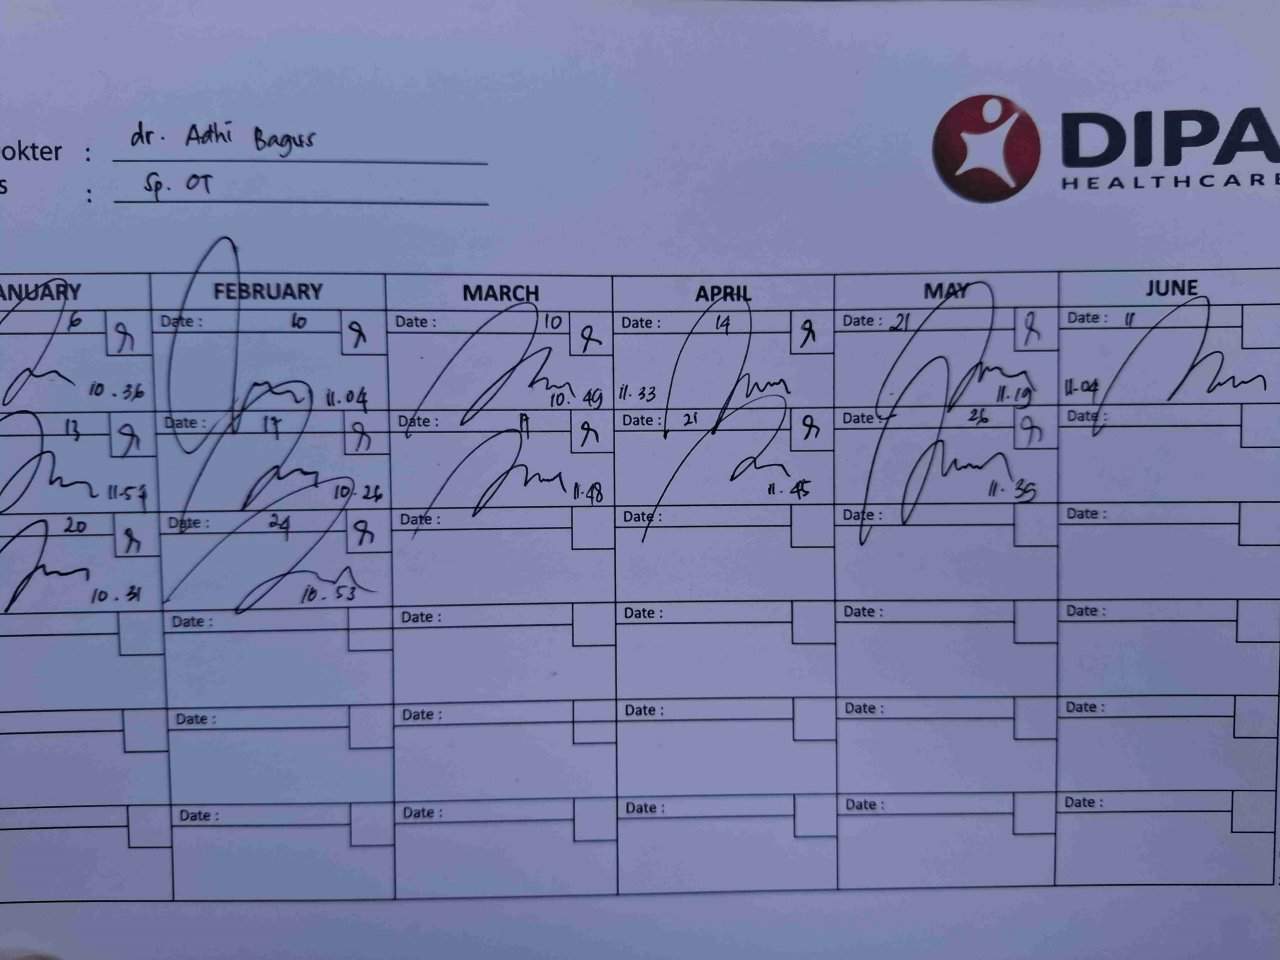 okter : dr. Adhi Bagus
s : Sp. OT
DIPA
HEALTHCARE
ANUARY FEBRUARY MARCH APRIL MAY JUNE
6 Date : 10 Date : 10 Date : 14 Date : 21 Date : 11
10.36 11.04 10.49 11.33 11.19 11.04
13 Date : 17 Date : 17 Date : 21 Date : 26 Date :
11.57 10.26 11.48 11.45 11.35
20 Date : 24 Date : Date : Date : Date :
10.31 10.53
Date : Date : Date : Date : Date :
Date : Date : Date : Date : Date :
Date : Date : Date : Date : Date :